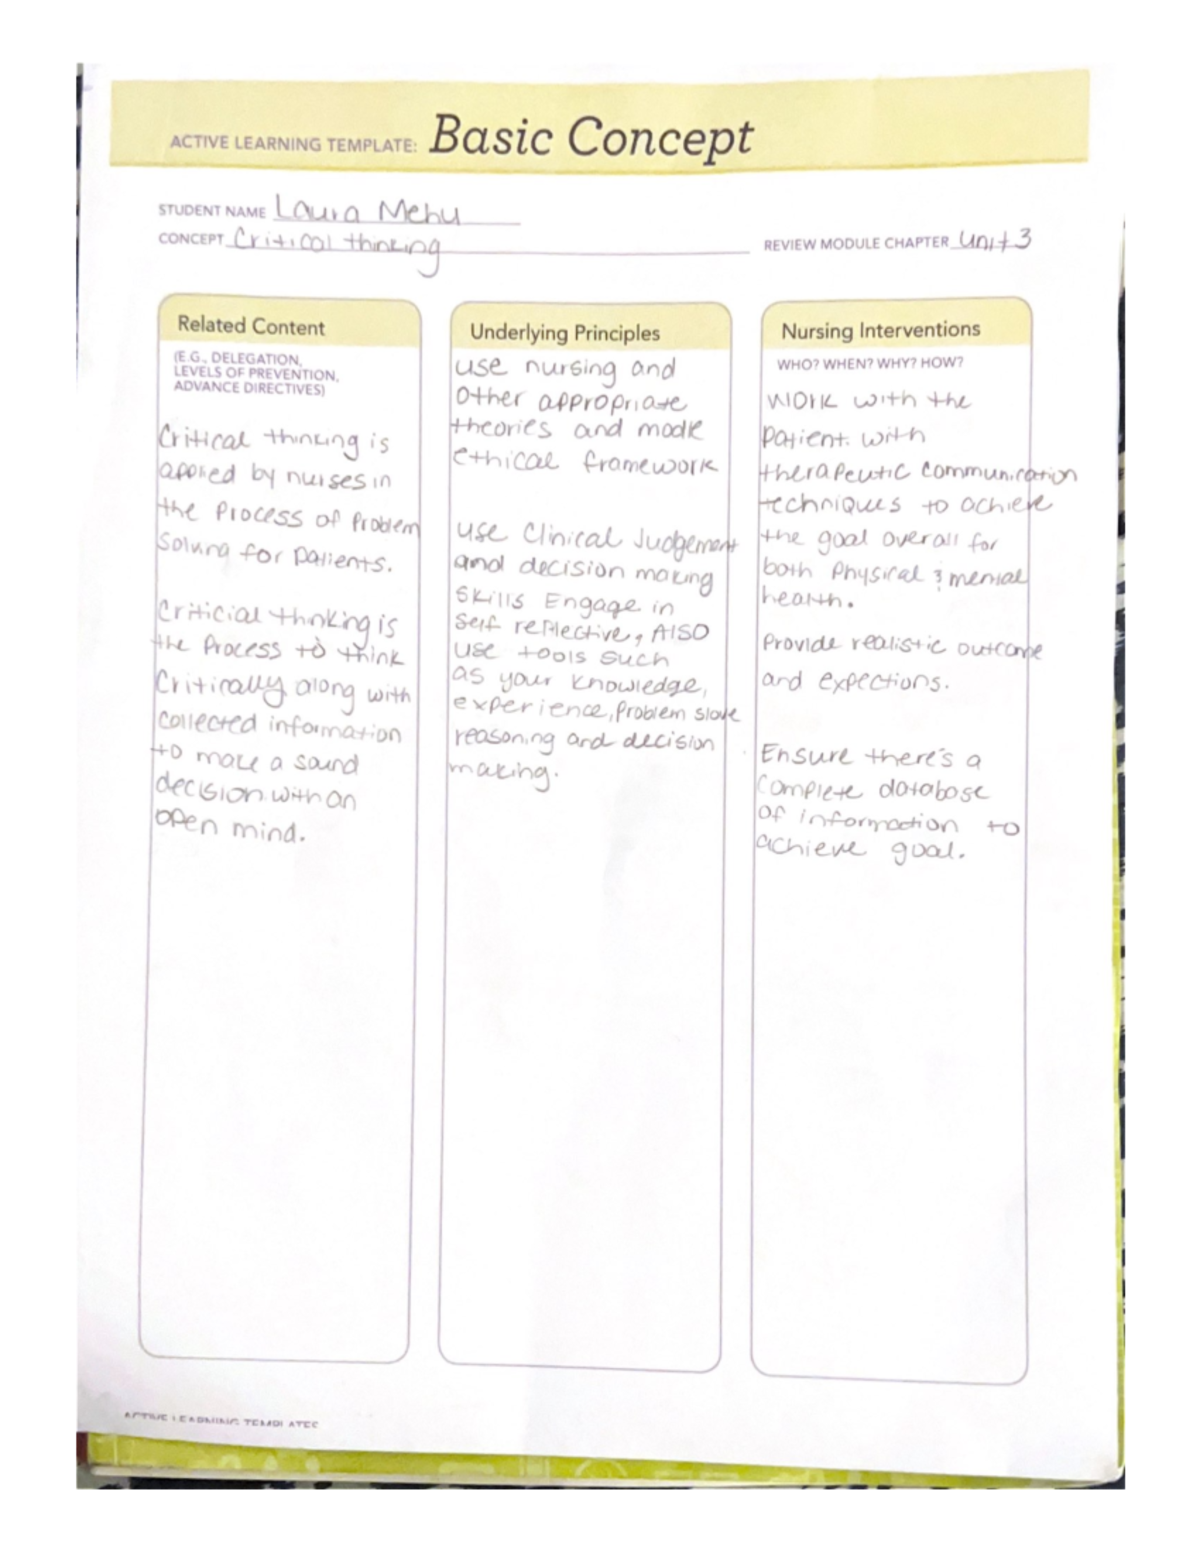 ACTIVE LEARNING TEMPLATE: Basic Concept
STUDENT NAME Laura Mehu
CONCEPT Critical thinking
REVIEW MODULE CHAPTER Unit 3
Related Content
(E.G., DELEGATION,
LEVELS OF PREVENTION,
ADVANCE DIRECTIVES)
Critical thinking is
applied by nurses in
the process of problem
solving for patients.
Criticial thinking is
the process to think
Critically along with
collected information
to make a sound
decision with an
open mind.
Underlying Principles
use nursing and
other appropriate
theories and modle
ethical framework
use Clinical Judgement
and decision making
skills Engage in
self reflective, Also
use tools such
as your knowledge,
experience, problem slove
reasoning and decision
making.
Nursing Interventions
WHO? WHEN? WHY? HOW?
Work with the
patient. with
therapeutic communication
techniques to achieve
the goal overall for
both physical & mental
health.
Provide realistic outcome
and expections.
Ensure there's a
complete database
of information to
achieve goal.
ACTIVE LEARNING TEMPLATES